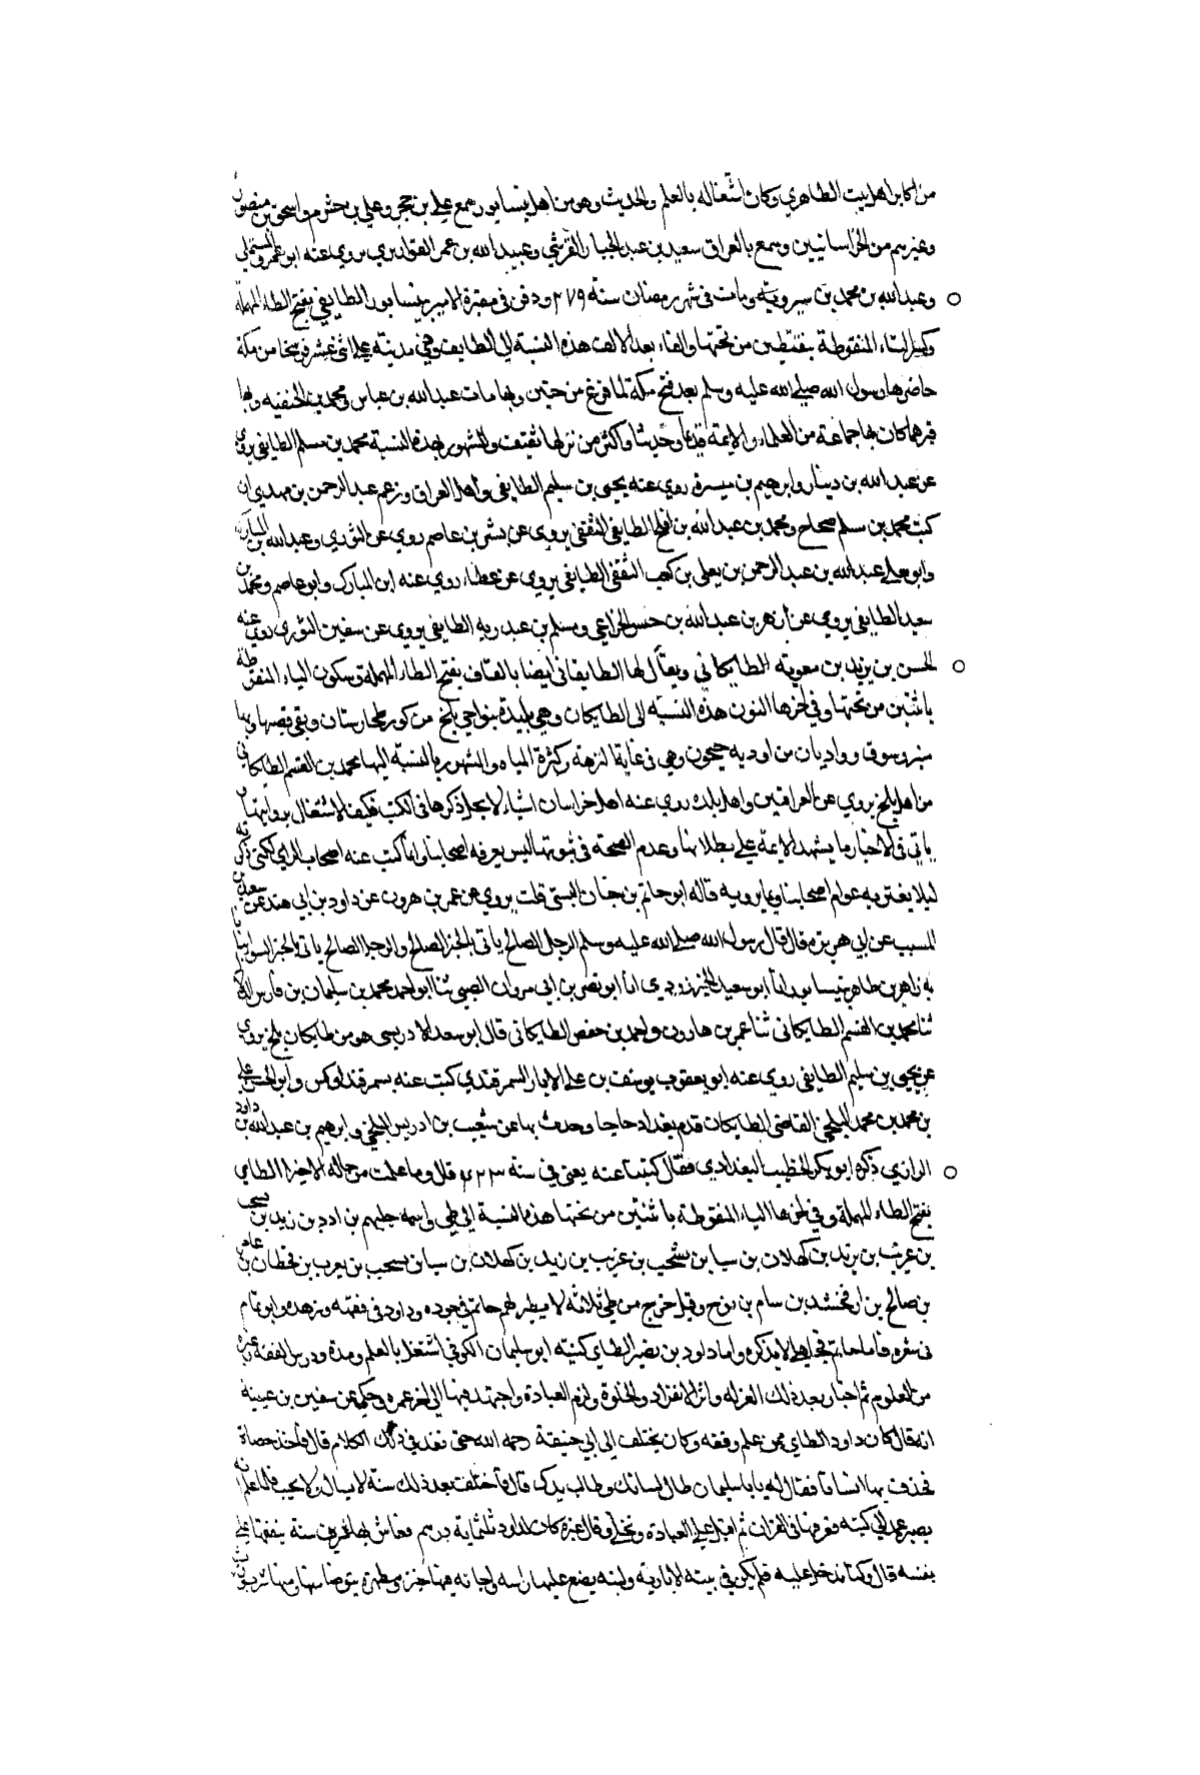 من اكابر اهل بيت الطاهري وكان اشتغاله بالعلم والحديث وهو من اهل نيسابور سمع علي بن حجر وعلي بن خشرم واسحق بن منصور
وغيرهم من الخراسانيين وسمع بالعراق سعيد بن عبد الجبار القرشي وعبيد الله بن عمر القواريري يروي عنه ابو عمرو المستملي
وعبد الله بن محمد بن سيرويه ومات في شهر رمضان سنة ٢٧٩ ودفن في مقبرة الامير بنيسابور الطايفي بفتح الطاء المهملة
وكسر الياء المنقوطة بنقطتين من تحتها والفاء بعد الالف هذه النسبة الى الطايف وهي مدينة على اثنى عشر فرسخا من مكة
حاصرها رسول الله صلى الله عليه وسلم بعد فتح مكة لما فرغ من حنين وبها مات عبد الله بن عباس ومحمد بن الحنفيه وبها
قبرهما كان بها جماعة من العلماء والايمة قديما وحديثا واكثر من نزلها ثقيف والمشهور بهذه النسبة محمد بن مسلم الطايفي يروي
عن عبد الله بن دينار وابرهيم بن ميسرة روي عنه يحيى بن سليم الطايفي واهل العراق وزعم عبد الرحمن بن مهدي ان
كتب محمد بن مسلم صحاح ومحمد بن عبد الله بن افلح الطايفي الثقفي يروي عن بشر بن عاصم روي عن الثوري وعبد الله بن المبارك
وابو يعلى عبد الله بن عبد الرحمن بن يعلى بن كعب الثقفي الطايفي يروي عن عطاء روي عنه ابن المبارك وابو عاصم ومحمد بن
سعيد الطايفي يروي عن ازهر بن عبد الله بن الخزاعي ومسلم بن عبد ربه الطايفي يروي عن سفين الثوري روي عنه
الحسن بن يزيد بن معوية الطايكاني ويقال لها الطايقاني ايضا بالقاف بفتح الطاء المهملة وسكون الياء المنقوطة
باثنتين من تحتها وفي اخرها النون هذه النسبة الى الطايكان وهي بليدة بنواحي بلخ من كور طخارستان وبها
منبر وسوق وواديان من اوديه جيحون وهي في غاية النزهة وكثرة المياه والمشهور بالنسبة اليها محمد بن القسم الطايكاني
من اهل بلخ يروي عن العراقيين واهل بلده روي عنه اهل خراسان اشياء لا يحل ذكرها في الكتب فكيف الاشتغال بروايتها
ياتي في الاخبار ما يشهد الايمة على بطلانها وعدم الصحة في ثبوتها ليس يعرفه اصحابنا وانما كتب عنه اصحاب الراي لكني ذكرته
ليلا يغتر به عوام اصحابنا وما يرويه قاله ابو حاتم بن حبان البستي قلت يروي عن عمر بن هرون عن داود بن ابي هند عن سعيد بن
المسيب عن ابي هريرة قال قال رسول الله صلى الله عليه وسلم الرجل الصالح ياتي بالخبر الصالح والرجل الصالح ياتي
به زاهر بن طاهر بنيسابور انا ابو سعيد انا ابو نصر بن ابي مروان الضبي ثنا ابو احمد محمد بن سليمان بن فارس
ثنا محمد بن القسم الطايكاني ثنا عمر بن هارون واحمد بن حفص الطايكاني قال ابو سعد الادريسي هو من طايكان بلخ يروي
عن يحيى بن سليم الطايفي روي عنه ابو يعقوب يوسف بن علي الابار السمرقندي كتب عنه بسمرقند وابو الحسن علي
بن محمد بن محمد البلخي القاضي الطايكان قدم بغداد حاجا وحدث بها عن شعيب بن ادريس البلخي وابرهيم بن عبد الله بن داود
الرازي ذكره ابو بكر الخطيب البغدادي فقال كتبنا عنه يعني في سنه قال وما علمت من حاله الا خيرا الطاي
بفتح الطاء المهملة وفي اخرها الياء المنقوطة باثنتين من تحتها هذه النسبة الى طي واسمه جلهم بن ادد بن زيد بن يشجب
بن عريب بن زيد بن كهلان بن سبا بن يشجب بن عريب بن زيد بن كهلان بن سبا بن يشجب بن يعرب بن قحطان بن عابر
بن صالح بن ارفخشد بن سام بن نوح وقيل خرج من طي ثلاثه لا نظير لهم حاتم في جوده وداود في فقهه وزهده وابو تمام
في شعره فاما حاتم واما داود بن نصير الطاي كنيته ابو سليمان الكوفي اشتغل بالعلم مدة ودرس الفقه وغيره
من العلوم ثم اختار بعد ذلك العزله واثر الانفراد والخلوة ولزم العبادة واجتهد فيها الى اخر عمره وحكي عن سفين بن عيينة
انه قال كان داود الطاي ممن علم وفقه وكان يختلف الى ابي حنيفة رحمه الله حتى نفذ في ذلك الكلام قال فاخذ حصاة
فحذف بها انسانا فقال له يابا سليمان طال لسانك وطالت يدك قال فاختلف بعد ذلك سنة لا يسال ولا يجيب فلما علم انه
يصبر عمد الى كتبه فغرقها في الفرات ثم اقبل على العبادة وتخلى وقال غيره كان لداود ثلثماية درهم فعاش بها عشرين سنة ينفقها على
نفسه قال وكنا ندخل عليه فلم يكن في بيته الا بارية ولبنه يضع عليها راسه واجانه فيها خبز ومطهرة يتوضا منها ومنها